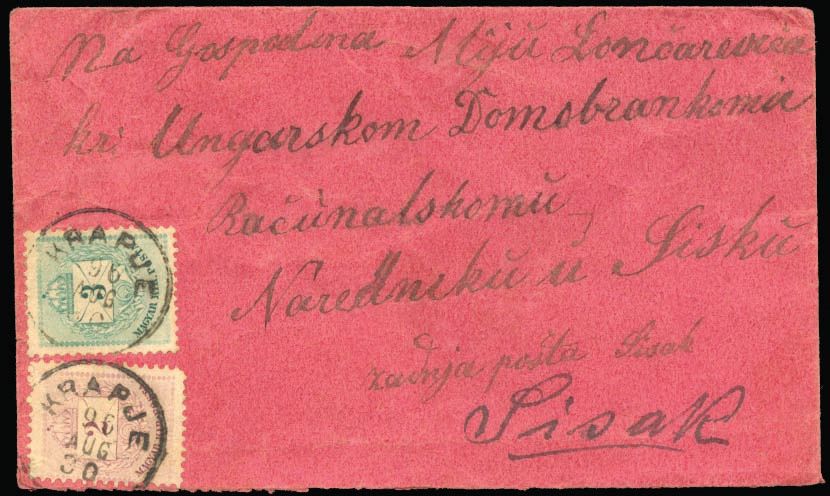 Na Gospodina Miju Lončarevića
kr: Ungarskom Domobrankomu
Računalskomu
Narednsku u Sisku
zadnja pošta Sisak
Sisak
KRAPJE
96
AUG
3
MAGYAR
KRAPJE
96
AUG
30
2